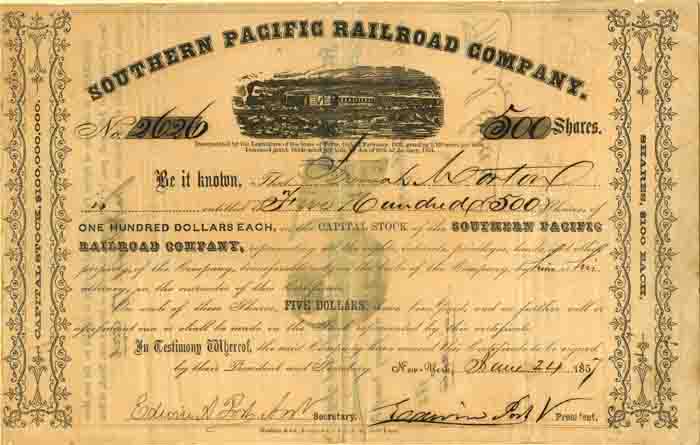 SOUTHERN PACIFIC RAILROAD COMPANY.
No. 2626 500 Shares.
Incorporated by the Legislature of the State of Texas,
Be it known, That Frank Morton
is entitled to Five Hundred (500) Shares of
ONE HUNDRED DOLLARS EACH, in the CAPITAL STOCK of the SOUTHERN PACIFIC
RAILROAD COMPANY,
property of the Company, transferable on the books of the Company, by him or his
attorney, on the surrender of this certificate.
On each of these Shares, FIVE DOLLARS have been paid, and no further call or
assessment is or shall be made on the Stock represented by this certificate.
In Testimony Whereof, the said Company have caused this Certificate to be signed
by their President and Secretary. New-York, June 24 1857
Edwin A Post Secretary. Edwin Post President.
CAPITAL STOCK, $100,000,000.
SHARES, $100 EACH.